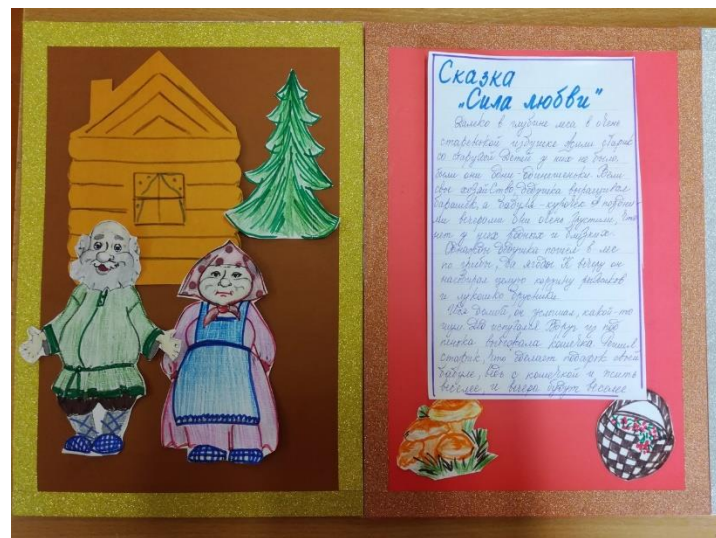 Сказка
„Сила любви"
Далеко в глубине леса в очень
старенькой избушке жили старик
со старухой. Детей у них не было,
были они одни-одинешеньки. Вели
свое хозяйство. Дедушка выращивал
барашек, а бабуля - курочек. А
ми вечерами они очень грустили, что
нет у них родных и близких.
Однажды дедушка пошел в лес
по грибы, да ягоды. К вечеру он
насобирал целую корзину рыжиков
и лукошко брусники.
Идя домой, он услышал, какой-то
шум. Он испугался. Вдруг из под
пенька выбежала кошечка. Решил
старик, что сделает подарок своей
бабуле, ведь с кошечкой и жить
веселее, и вечера будут веселее